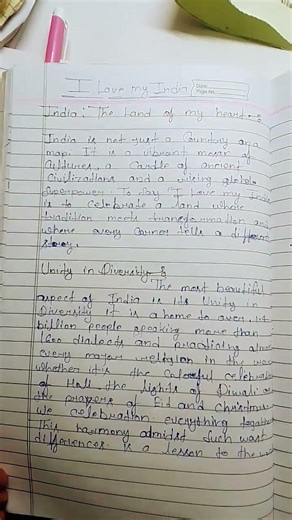 I Love my India
Date
Page No.
India : The Land of my heart :-
India is not just a Country on a
map. It is a vibrant mosaic of
Cultures, a Cradle of ancient
Civilizations and a rising global
Superpower. To Say "I Love my India
is to Celebrate a land where
tradition meets transformation and
where every Corner tells a different
story.
Unity in Diversity :-
The most beautiful
aspect of India is its Unity in
Diversity It is a home to over 1.4
billion people speaking more than
1600 dialects and practicing
every major religion in the
whether it's the Colorful celebration
of Holi the lights of Diwali or
the prayers of Eid and Christmas
we celebration everything together
This harmony amidst Such vast
differences is a lesson to the